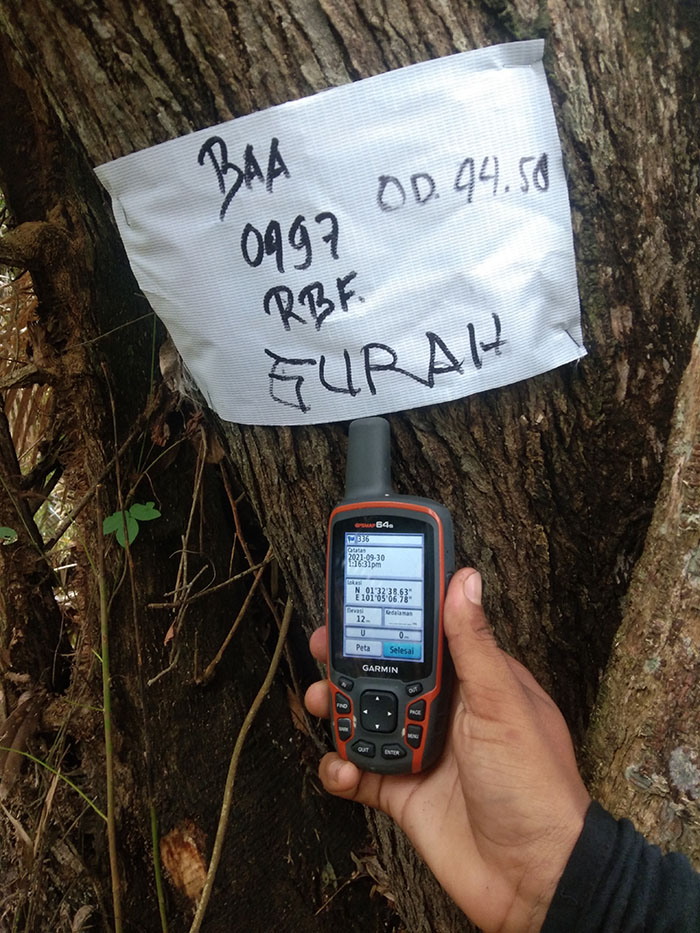 BAA
OD. 94.50
0997
RBF.
GURAH
GPSMAP 64s
336
Catatan
2021-09-30
1:16:31pm
Lokasi
N 01°32'38.63"
E 101°05'06.78"
Elevasi Kedalaman
12m
U 0m
Peta Selesai
GARMIN
IN OUT
FIND PAGE
MARK MENU
QUIT ENTER